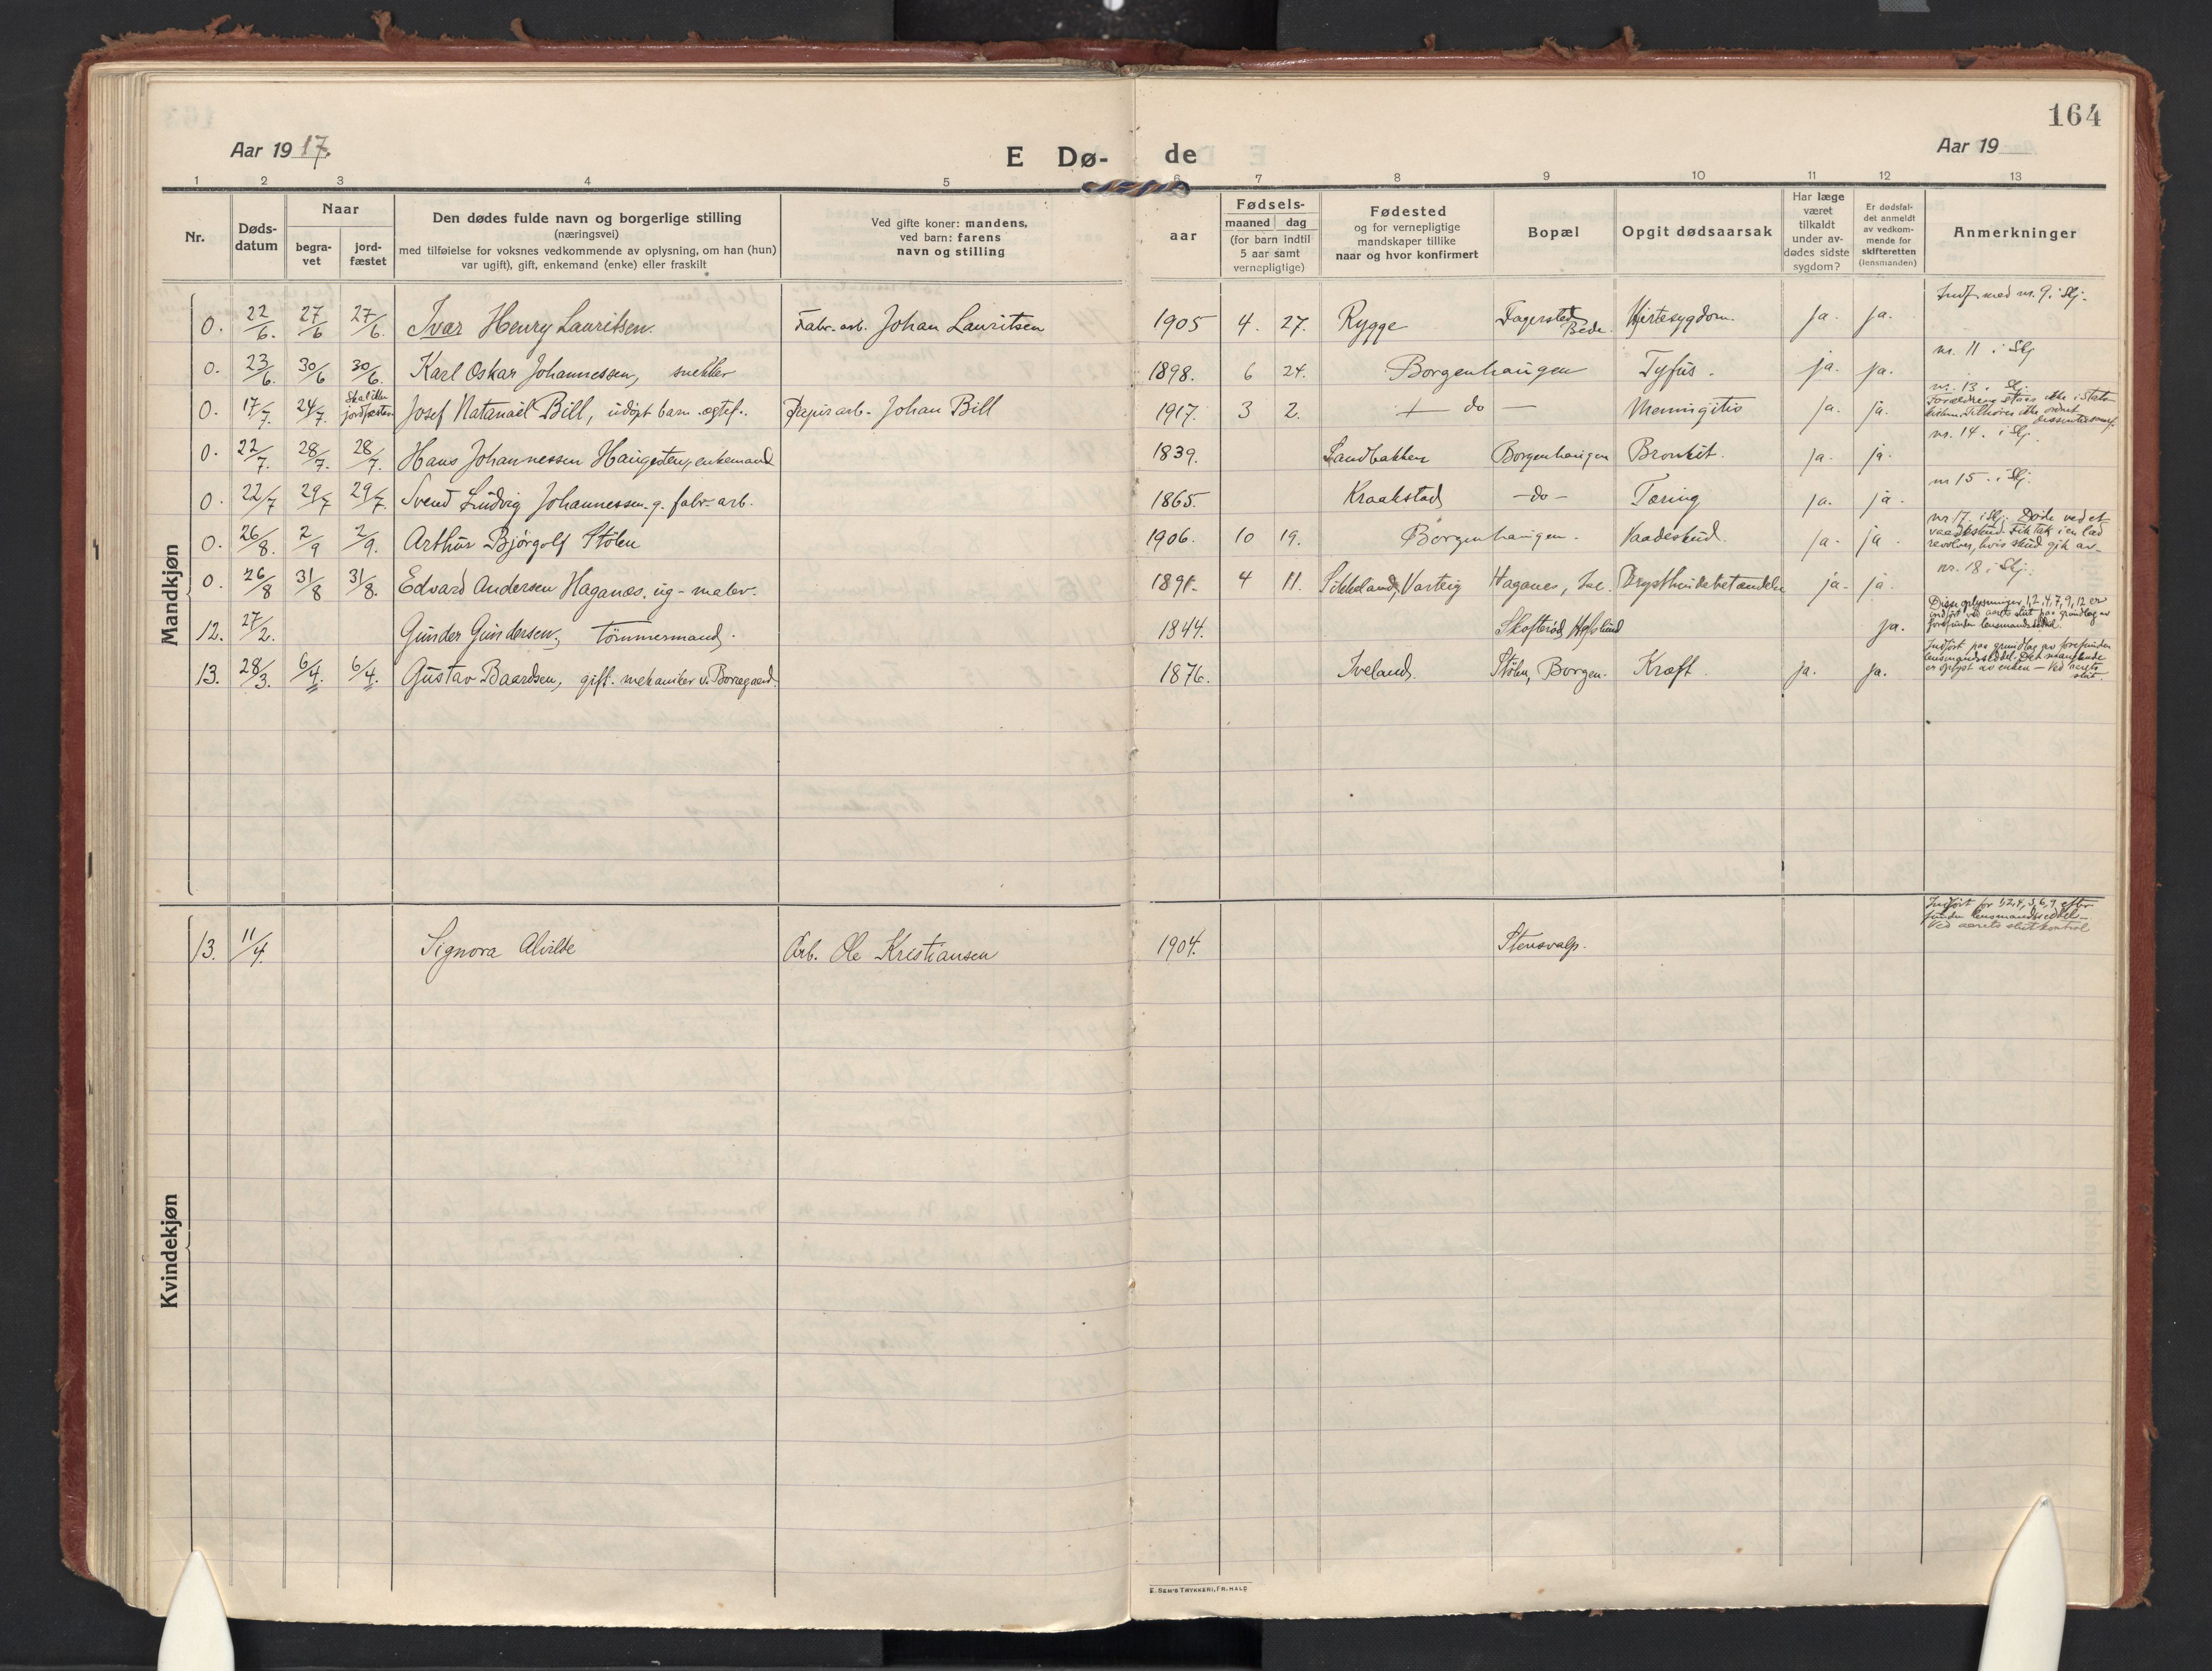 164
Aar 1917.
E Dø- de
Aar 19
1 2 3 4 5 6 7 8 9 10 11 12 13
Nr.
Døds-
datum
Naar
begra-
vet
jord-
fæstet
Den dødes fulde navn og borgerlige stilling
(næringsvei)
med tilføielse for voksnes vedkommende av oplysning, om han (hun)
var ugift), gift, enkemand (enke) eller fraskilt
Ved gifte koner: mandens,
ved barn: farens
navn og stilling
aar
Fødsels-
maaned dag
(for barn indtil
5 aar samt
vernepligtige)
Fødested
og for vernepligtige
mandskaper tillike
naar og hvor konfirmert
Bopæl
Opgit dødsaarsak
Har læge
været
tilkaldt
under av-
dødes sidste
sygdom?
Er dødsfal-
det anmeldt
av vedkom-
mende for
skifteretten
(lensmanden)
Anmerkninger
Mandkjøn
0. 22/6. 27/6 27/6. Ivar Henry Lauritsen. Fabr. arb. Johan Lauritsen 1905 4. 27. Rygge Fagersted Bede. Hjertesygdom. ja. ja. Indf. med nr. 9. i Skj.
0. 23/6. 30/6 30/6. Karl Oskar Johannessen, snekker 1898. 6 24. Borgenhaugen Tyfus. ja. ja. nr. 11 i Skj
0. 17/7. 24/7. Skal ikke jordfæstes Josef Natanael Bill, udøpt barn. egtef. Papirarb. Johan Bill 1917. 3 2. + do — Meningitis ja. ja. nr. 13. i Skj. Forældrene staar ikke i Stats-
kirken. Tilhører ikke ordnet
dissentersamf.
0. 22/7. 28/7. 28/7. Hans Johannessen Haugesten, enkemand 1839. Sandbakken Borgenhaugen Bronkit. ja. ja. nr. 14. i Skj.
0. 22/7 29/7 29/7. Svend Ludvig Johannessen. g. fabr. arb. 1865. Kraakstad —do— Tæring ja. ja. nr 15. i Skj.
0. 26/8. 2/9 2/9. Arthur Bjørgolf Stölen 1906. 10 19. Borgenhaugen. Vaadeskud. ja. ja. nr. 17. i Skj. Døde ved et
vaadeskud. Fik tak i en lad
revolver, hvis skud gik av.
0. 26/8 31/8 31/8. Edvard Andersen Haganæs. ug- maler. 4 11. Sikkeland, Varteig Haganes, Brysthindebetændelse ja. ja. nr. 18 i Skj.
12. 27/2. Gunder Gundersen, Tömmermand. 1844. Skofteröd, Hafslund ja. Disse oplysninger, 1, 2, 4, 7, 9, 12 er
indført ved aarets slut paa grundlag av
forefunden lensmandsseddel.
13. 28/3. 6/4. 6/4. Gustav Baardsen, gift. mekaniker v. Borregaard. 1876. Iveland. Stölen, Borgen. Kræft. ja. ja. Indført paa grundlag av forefunden
lensmandsseddel. Det manglende
er oplyst av enken — Ved aarets
slut.
Kvindekjøn
13. 11/4. Signora Alvilde Arb. Ole Kristiansen 1904. Stensvalp. Indført for 1, 2, 4, 5, 6, 9 efter
funden lensmandsseddel.
Ved aarets slutkontrol
E. SEM'S TRYKKERI, FR.HALD